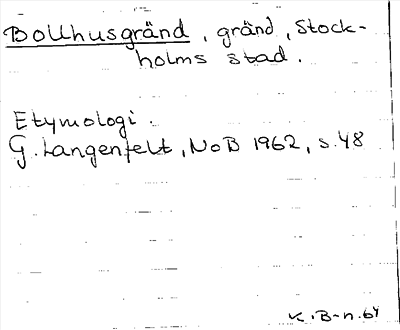 Bollhusgränd, gränd, Stock-
holms stad.
Etymologi.
G. Langenfelt, NoB 1962, s. 48
K.B-n. 64